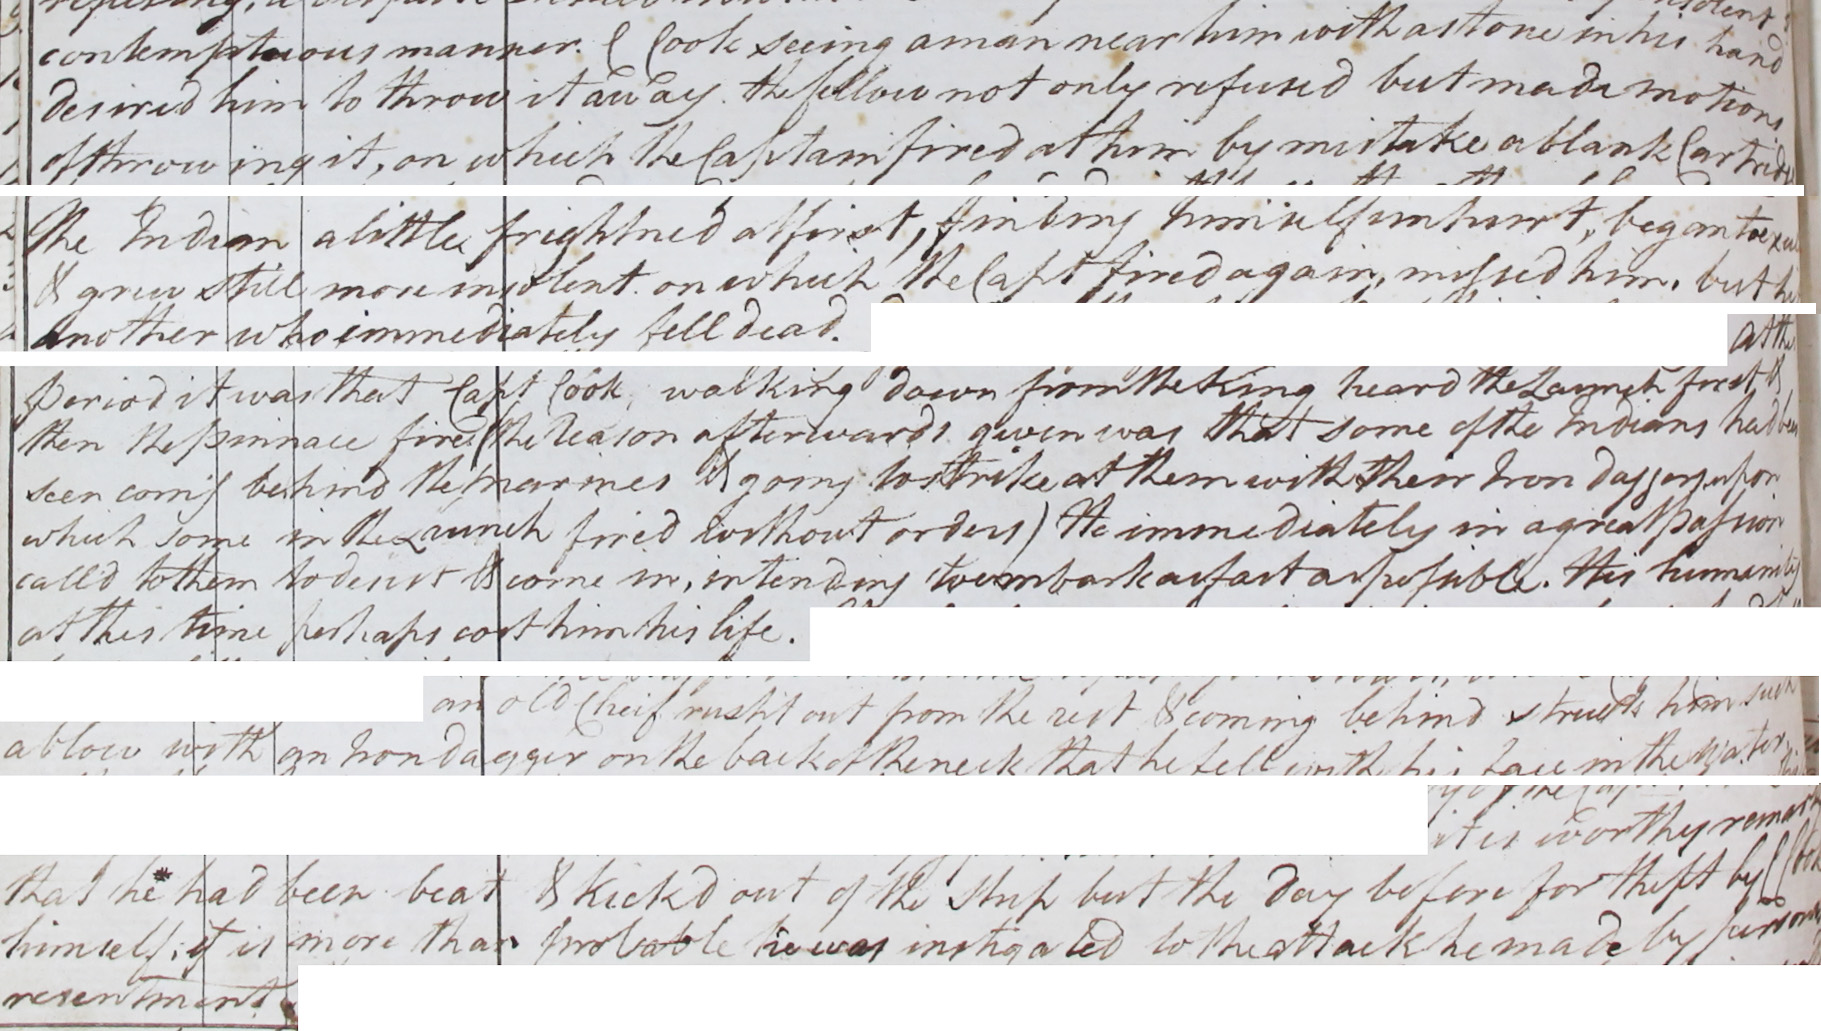 contemptuous manner. C Cook seeing a man near him with a stone in his hand
desired him to throw it away. the fellow not only refused but made motions
of throwing it, on which the Captain fired at him by mistake a blank Cartridge
The Indian a little frightned at first, finding himself unhurt, began to
& grew still more insolent. on which the Capt fired again, missed him, but
another who immediately fell dead.
at the
period it was that Capt Cook, walking down from the King heard the Launch first &
then the pinnace fire (the reason afterwards given was that some of the Indians had been
seen comig behind the marines & going to strike at them with their Iron daggers, upon
which some in the Launch fired without orders) He immediately in a great passion
calld to them to desist & come in, intending to embark as fast as possible. this humanity
at this time perhaps cost him his life.
an old Cheif rusht out from the rest & coming behind struck him such
a blow with an Iron dagger on the back of the neck that he fell with his face in the Water
it is worthy remark
that he* had been beat & kickd out of the Ship but the day before for theft by C Cook
himself; it is more than probable he was instigated to the attack he made by personal
resentment.